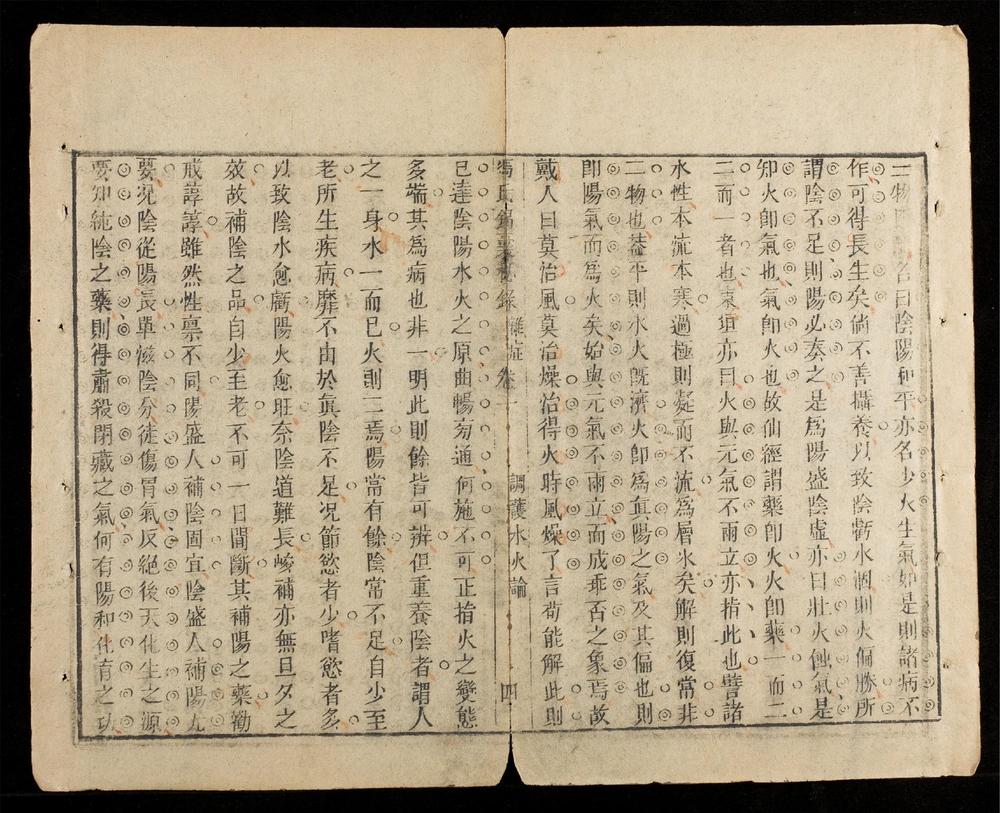 二物名曰陰陽和平亦名少火生氣如是則諸病不
作可得長生矣倘不善攝養以致陰虧水涸則火偏勝所
謂陰不足則陽必奏之是爲陽盛陰虛亦曰壯火蝕氣是
知火卽氣也氣卽火也故仙經謂藥卽火火卽藥一而二
二而一者也東垣亦曰火與元氣不兩立亦指此也譬諸
水性本流本寒過極則凝而不流爲層氷矣解則復常非
二物也蓋平則水火旣濟火卽爲眞陽之氣及其偏也則
卽陽氣而爲火矣始與元氣不兩立而成乖否之象焉故
戴人曰莫治風莫治燥治得火時風燥了言苟能解此則
馮氏錦囊秘錄 雜症卷十 調護水火論 四
已達陰陽水火之原曲暢旁通何施不可正指火之變態
多端其爲病也非一明此則餘皆可辨但重養陰者謂人
之一身水一而已火則二焉陽常有餘陰常不足自少至
老所生疾病靡不由於眞陰不足况節慾者少嗜慾者多
以致陰水愈虧陽火愈旺奈陰道難長峻補亦無旦夕之
效故補陰之品自少至老不可一日間斷其補陽之藥勸
戒諄諄雖然性禀不同陽盛人補陰固宜陰盛人補陽尤
要况陰從陽長單滋陰分徒傷胃氣反絕後天化生之源
要知純陰之藥則得肅殺閉藏之氣何有陽和化育之功